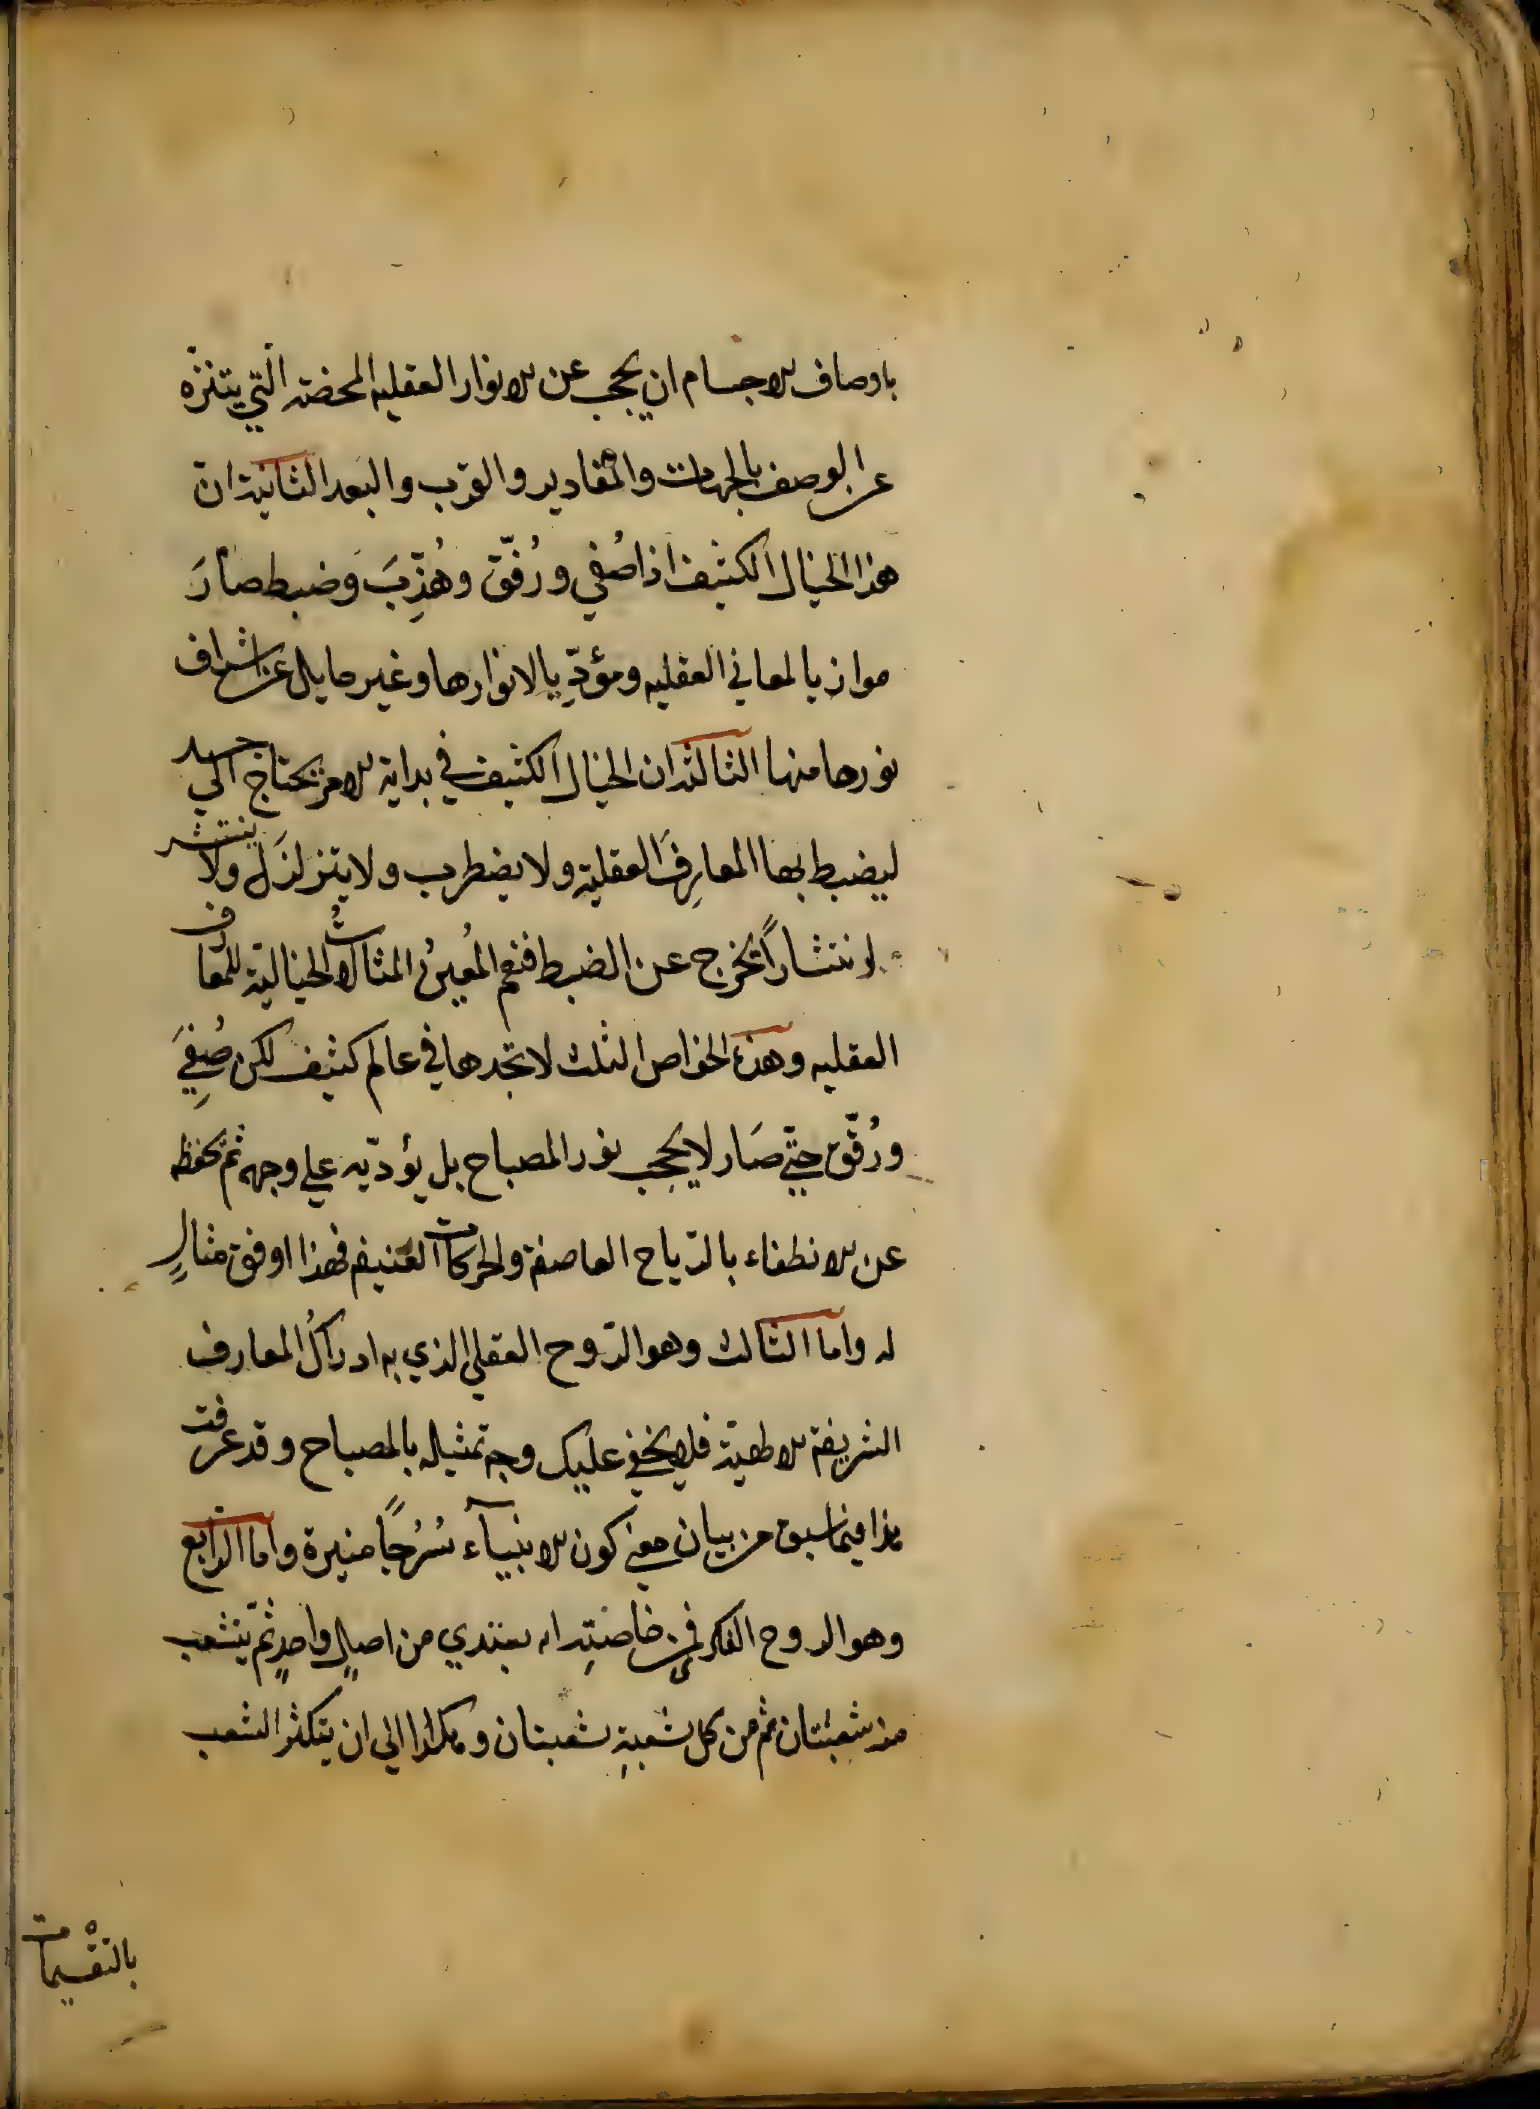 باوصاف الاجسام ان يحجب عن الانوار العقليه المحضة الّتي يتنزّه
عن الوصف بالجهات والمقادير والقرب والبعد الثانية ان
هذا الخيال الكثيف اذا صُفي ورُقّق وهُذِّبَ وضبط صارَ
موازيا لمعاني العقليه ومؤدّيا لانوارها وغير حايل عن اشراف
نورها منها الثالثة ان الخيال الكثيف في بداية الامر يحتاج اليه
ليضبط بها المعارفَ العقلية ولا يضطرب ولا يتزلزَل ولا ينتشر
انتشاراً يخرج عن الضبط فنعم المُعينُ المثالاتُ الخيالية للمعارف
العقليه وهذه الخواص الثلث لا تجدها في عالم كثيف لكن صُفِيَ
ورُقّق حتّي صَار لا يحجب نور المصباح بل يؤدّيه علي وجهه ثم يحفظه
عن الانطفاء بالرّياح العاصفة والحركات العنيفه فهذا اوفق مثالٍ
له واما الثالث وهو الرّوح العقلي الذي به ادراكُ المعارف
الشريفة الالهيّة فلا يخفي عليك وجه تمثيله بالمصباح وقد عرفت
هذا فيما سبق من بيان معني كون الانبيآء سُرُجاً منيرة واما الرّابع
وهو الروح الفكري فمن خاصّيته انه يبتدي من اصلٍ واحدٍ ثمّ يتشعب
منه شعبتان ثم من كل شعبةٍ شعبتان وهكذا الي ان يتكثر الشعب
بالتقسيمات